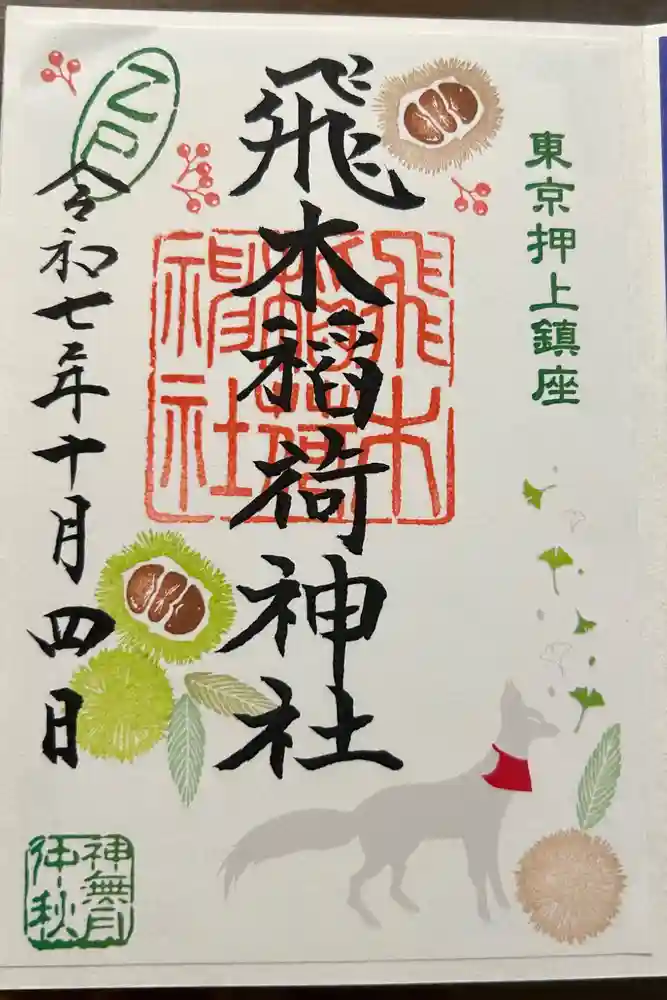 東京押上鎮座
飛木稲荷神社
飛木
稲荷
神社
令和七年十月四日
神無月
仲秋